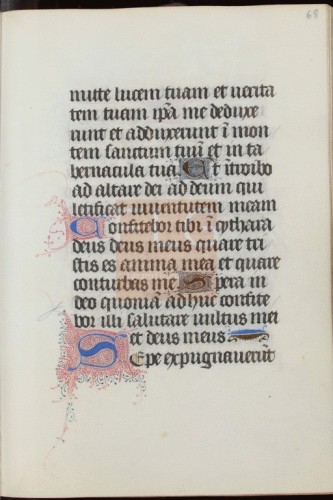 68
mitte lucem tuam et verita
tem tuam ip̄a me deduxe
runt et adduxerunt ī mon
tem sanctum tuū et in ta
bernacula tua Et ītroibo
ad altare dei ad deum qui
letificat iuventutem meam
Confitebor tibi ī cythara
deus deus meus quare tri
stis es anima mea et quare
conturbas me Spera in
deo quoniā adhuc confite
bor illi salutare vultus mei
et deus meus
Sepe expugnaverūt